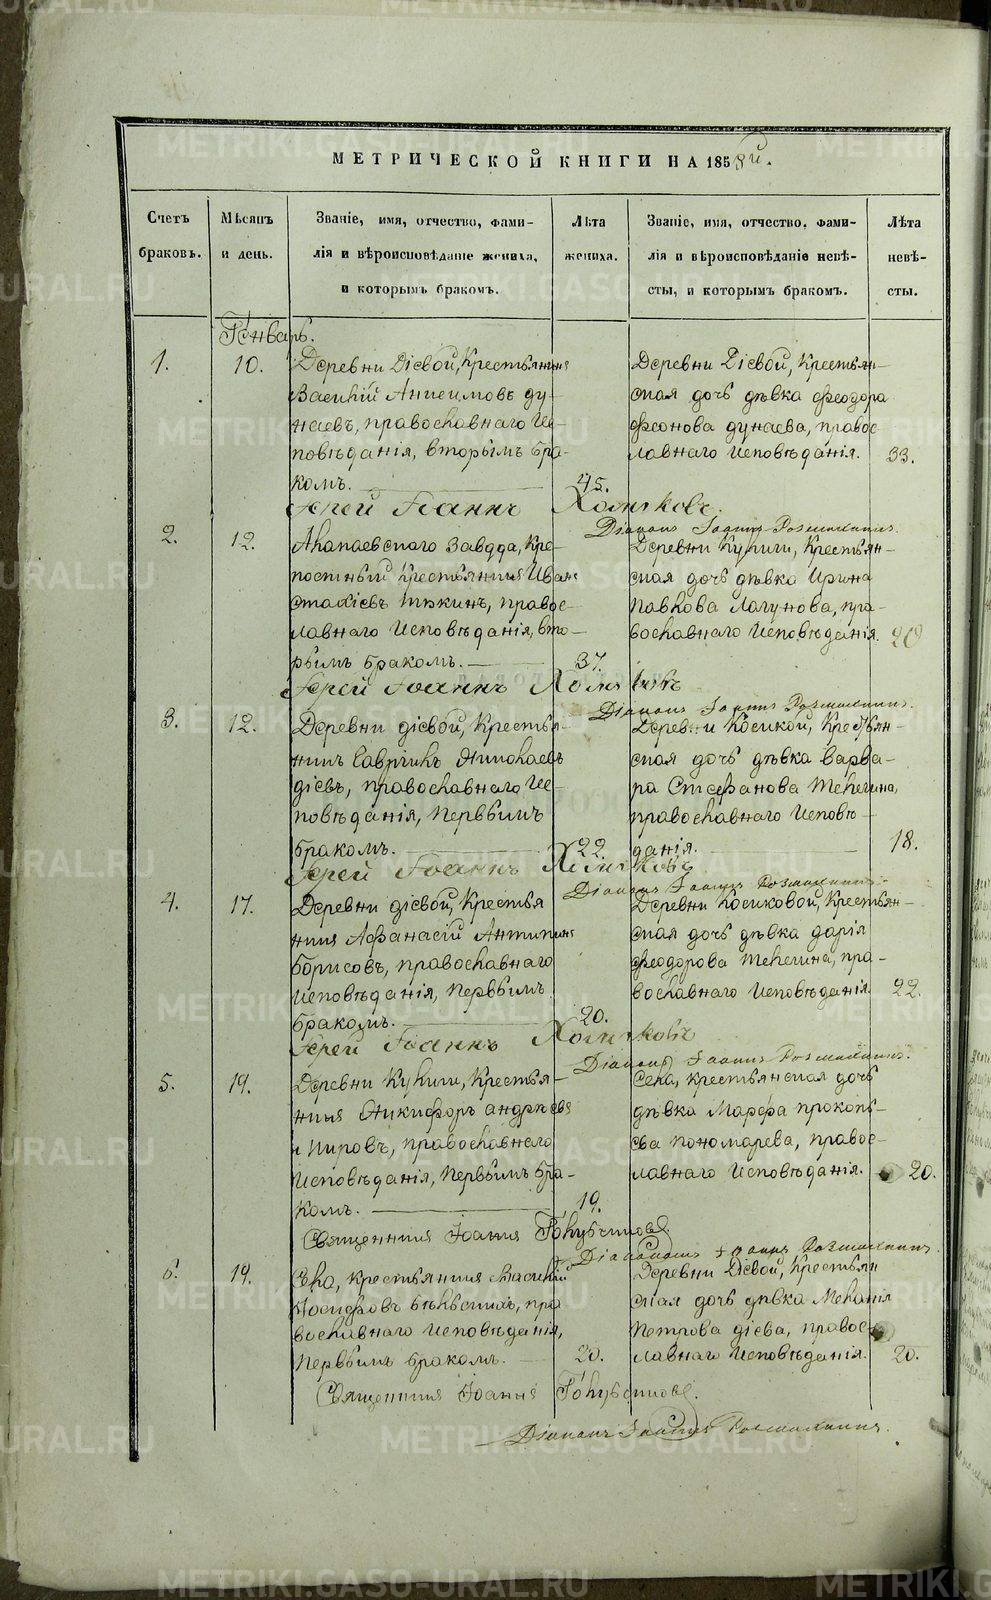 МЕТРИЧЕСКОЙ КНИГИ НА 1858й.
Счетъ браковъ.
Мѣсяцъ и день.
Званіе, имя, отчество, фами-
лія и вѣроисповѣданіе жениха,
и которымъ бракомъ.
Лѣта жениха.
Званіе, имя, отчество, фами-
лія и вѣроисповѣданіе невѣ-
сты, и которымъ бракомъ.
Лѣта невѣ-
сты.
Январь.
1.
10.
Деревни Діевой, Крестьянинъ
Василій Анисимовъ Ду-
наевъ, православнаго Ис-
повѣданія, вторымъ бра-
комъ.
45.
Деревни Діевой, Крестьян-
ская дочь дѣвка Феодора
Феонова Дунаева, правос-
лавнаго Исповѣданія.
33.
Іерей Іоаннъ Хомяковъ.
Діаконъ Іоаннъ
2.
12.
Алапаевскаго Завода, Кре-
постный Крестьянинъ Иванъ
православнаго Исповѣданія, вто-
рымъ бракомъ.
37.
Деревни Кулиги, Крестьян-
ская дочь дѣвка Ирина
Павлова Лагунова, пра-
вославнаго Исповѣданія.
20
Іерей Іоаннъ Хомяковъ
Діаконъ Іоаннъ
3.
12.
Деревни Діевой, Крестья-
нинъ Гаврилъ Николаевъ
Діевъ, православнаго Ис-
повѣданія, Первымъ
бракомъ.
22
Деревни Косиковой, Крестьян-
ская дочь дѣвка Варва-
ра Стефанова Телегина,
православнаго Исповѣ-
данія.
18.
Іерей Іоаннъ Хомяковъ
Діаконъ Іоаннъ
4.
17.
Деревни Діевой, Крестья
нинъ Афанасій Антипинъ
Борисовъ, православнаго
Исповѣданія, Первымъ
бракомъ.
20.
Деревни Косиковой, Крестьян-
ская дочь дѣвка Дарія
Феодорова Телегина, пра-
вославнаго Исповѣданія.
22.
Іерей Іоаннъ Хомяковъ
Діаконъ Іоаннъ
5.
19.
Деревни Кулиги, Крестья-
нинъ Никифоръ Андреевъ
православнаго
Исповѣданія, Первымъ бра-
комъ.
19.
Села, крестьянская дочь
дѣвка Марфа Прокопь-
ева Пономарева, правос-
лавнаго Исповѣданія.
20.
Священникъ Іоаннъ Голубчиковъ.
Діаконъ Іоаннъ
6.
19.
Села, крестьянинъ Василій
Іосифовъ пра
вославнаго Исповѣданія,
Первымъ бракомъ.
20.
Деревни Діевой, Крестьян
ская дочь дѣвка Меланія
Петрова Діева, правос-
лавнаго Исповѣданія.
20.
Священникъ Іоаннъ Голубчиковъ.
Діаконъ Іоаннъ
METRIKI.GASO-URAL.RU